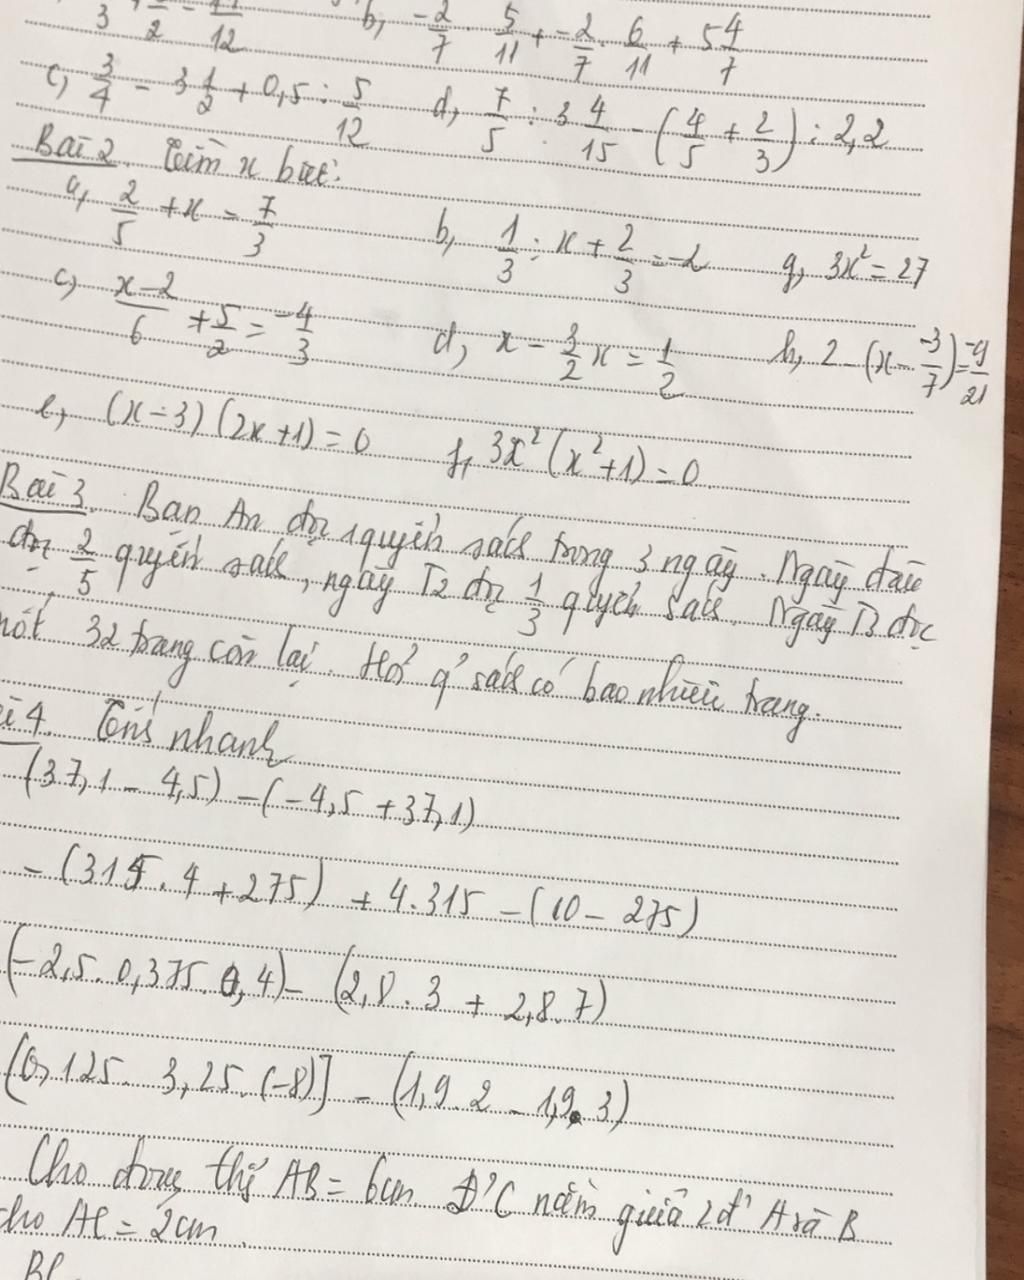 b, -2/7 . 5/11 + -2/7 . 6/11 + 5 4/7
c, 3/4 - 3 1/2 + 0,5 : 5/12 d, 7/5 : 3 4/15 - (4/5 + 2/3) : 2,2
Bài 2. Tìm x biết:
a, 2/5 + x = 7/3 b, 1/3 : x + 2/3 = -2 g, 3x² = 27
c, x-2/6 + 5/2 = -4/3 d, x - 3/2 x = 1/2 h, 2 - (x - -3/7) = -9/21
e, (x-3) (2x+1) = 0 f, 3x² (x²+1) = 0
Bài 3. Bạn An đọc 1 quyển sách trong 3 ngày. Ngày đầu
đọc 2/5 quyển sách, ngày T2 đọc 1/3 quyển sách. Ngày T3 đọc
nốt 32 trang còn lại. Hỏi q' sách có bao nhiêu trang.
ài 4. Tính nhanh
(37,1 - 4,5) - (-4,5 + 37,1)
- (315 . 4 + 275) + 4 . 315 - (10 - 275)
(-2,5 . 0,375 . 0,4) - (2,8 . 3 + 2,8 . 7)
(0,125 . 3,25 . (-8)] - (1,9 . 2 - 1,9 . 3)
Cho đoạn thẳng AB = 6cm. Đ' C nằm giữa 2 đ' A và B
cho AC = 2cm.